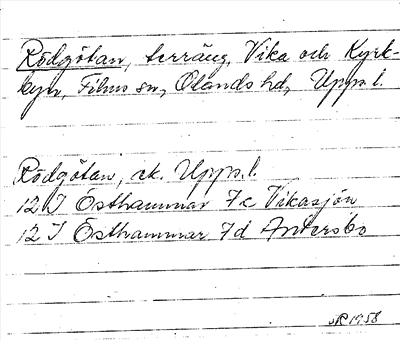 Rödgötan, terräng, Vika och Kyrk-
byn, Films sn, Olands hd, Upps. l.
Rödgötan, ek. Upps. l.
12 I Östhammar 7c Vikasjön
12 I Östhammar 7d Andersbo
1958